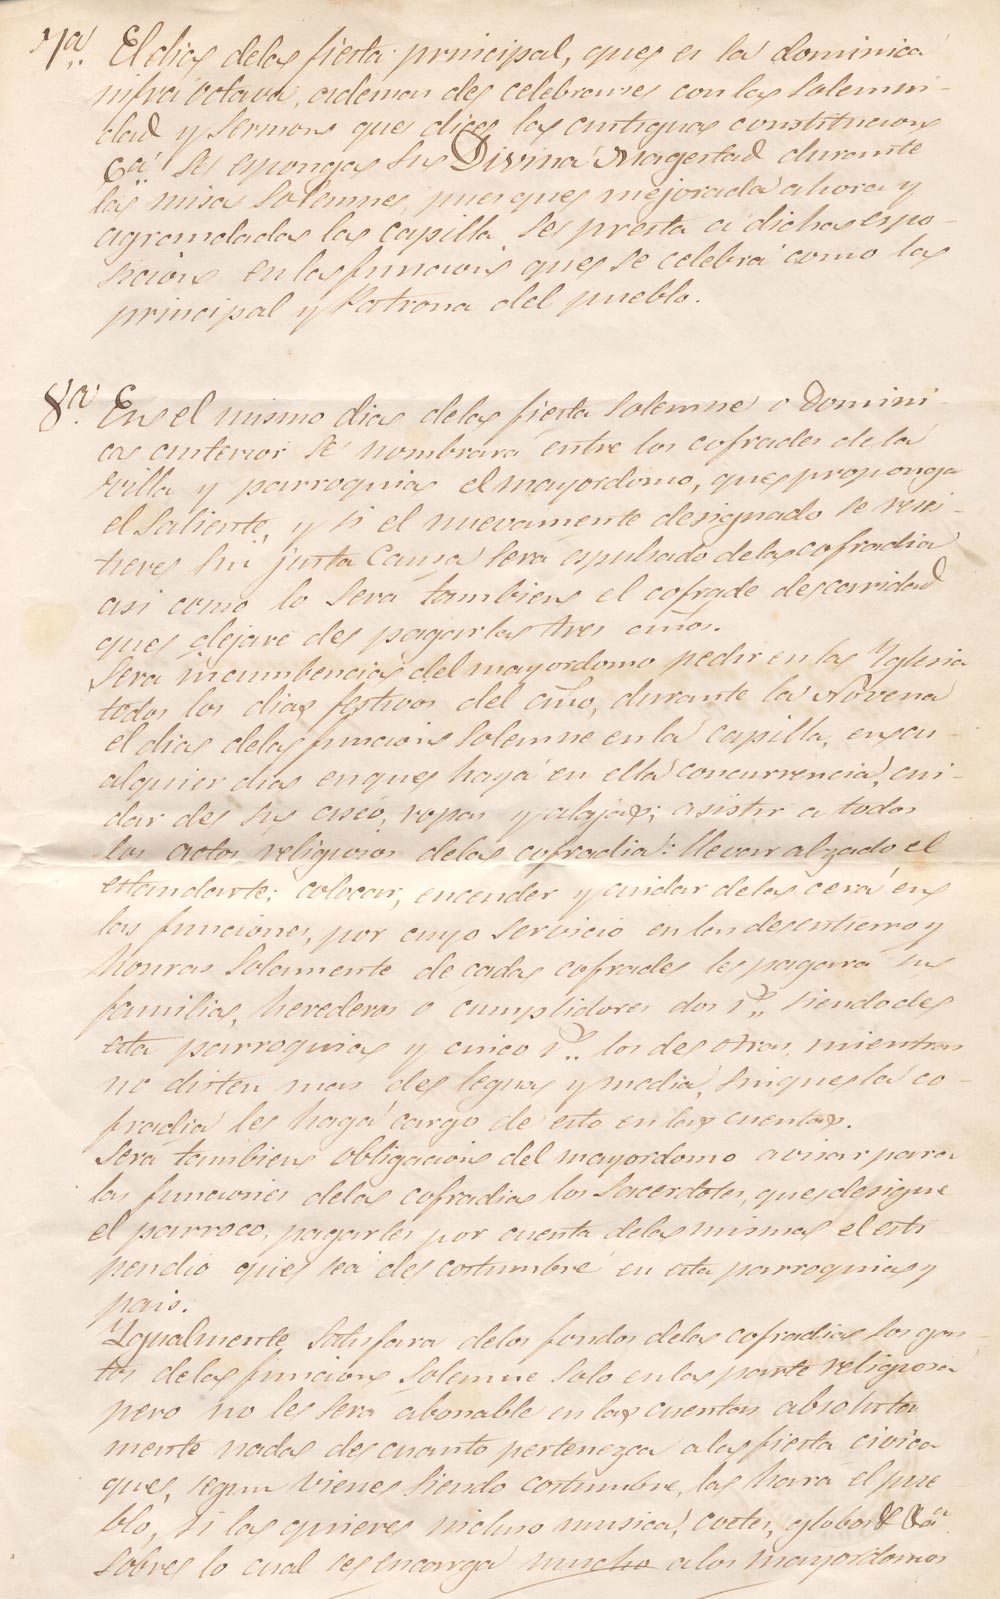 7ª. El dia de la fiesta principal, que es la dominica
infra octava, ademas de celebrarse con la solemni-
dad y sermon que dice las antiguas constitucion
6ª. se esponga Su Divina Magestad durante
la misa solemne, pues que mejorada ahora y
agrandada la capilla se presta á dicha espo-
sicion en la funcion que se celebra como la
principal y Patrona del pueblo.
8ª. En el mismo dia de la fiesta solemne o domini-
ca anterior se nombrara entre los cofrades de la
villa y parroquia el mayordomo, que proponga
el saliente, y si el nuevamente designado se resis-
tiere sin justa causa sera espulsado de la cofradia
asi como lo sera tambien el cofrade descarriado
que dejare de pagar las tres años.
Sera incumbencia del mayordomo pedir en la Yglesia
todos los dias festivos del año, durante la Novena
el dia de la funcion solemne en la capilla, en cu-
alquier dia en que haya en ella concurrencia, cui-
dar de su aseo, ropas y alajas; asistir a todos
los actos religiosos de la cofradia: llevar alzado el
estandarte; colocar, encender y cuidar de la cera en
las funciones, por cuyo servicio en las de entierro y
honras solamente de cada cofrade les pagará su
familia, herederos o cumplidores dos rˢ.. siendo de
esta parroquia y cinco rˢ.. los de otras, mientras
no disten mas de legua y media, sin que la co-
fradia les haga cargo de esto en las cuentas.
Sera tambien obligacion del mayordomo avisar para
las funciones de la cofradia los Sacerdotes, que designe
el parroco, pagarles por cuenta de la misma el esti
pendio que sea de costumbre en esta parroquia y
pais.
Ygualmente satisfara de los fondos de la cofradia los gas-
tos de la funcion solemne solo en la parte religiosa
pero no les sera abonable en las cuentas absoluta
mente nada de cuanto pertenezca a la fiesta civica
que, segun viene siendo costumbre, la hara el pue
blo, si la quiere incluso musica, cohetes, globos &&ª
sobre lo cual se encarga mucho a los mayordomos